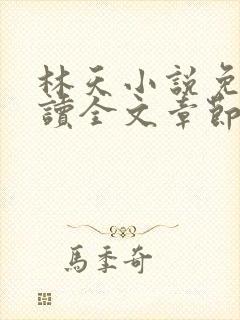 林天小説免
讀全文章節
馬季奇